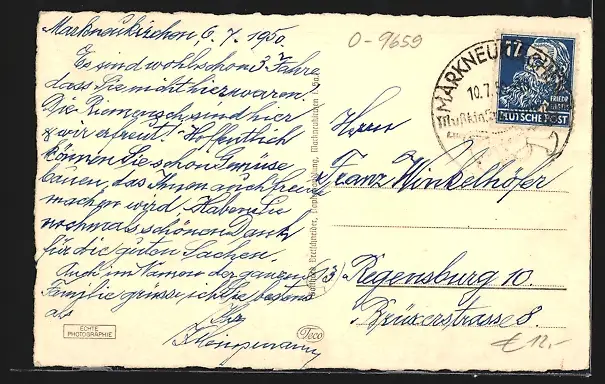 Markneukirchen, 6. 7. 1950
Es sind wohl schon 3 Jahre
dass Sie nicht hier waren.
Die Riemen sind hier
& wir erfreut. Hoffentlich
können Sie schon Gemüse
bauen, das Ihnen auch Freude
machen wird. Haben Sie
nochmals schönen Dank
für die guten Sachen.
Auch im Namen der ganzen
Familie grüsse ich Sie bestens
als
Ihr
ECHTE
PHOTOGRAPHIE
Teco
O-9659
MARKNEUKIRCHEN
10.7.
17
DEUTSCHE POST
Herrn
Franz Winkelhöfer
13) Regensburg 10.
Brückerstrasse 8.
€ 12,-